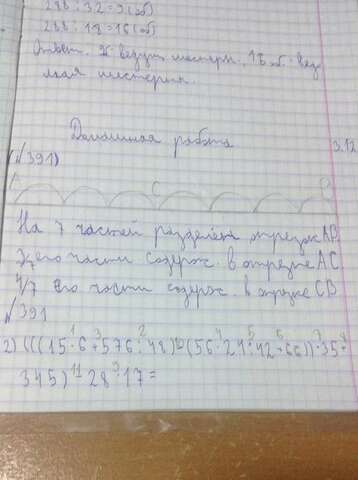 288 : 32 = 9 (об)
288 : 18 = 16 (об)
Ответ. 9 ведущ шестерн., 16 об. вед
мая шестерня.
Домашняя работа 3.12
(№391)
А С В
На 7 частей разделён отрезок АВ.
3/7 его части содерж. в отрезке АС
4/7 его части содерж. в отрезке СВ
№391
2) (((15·6+576:48):(56·21:42+66))·35+
345):28·17=